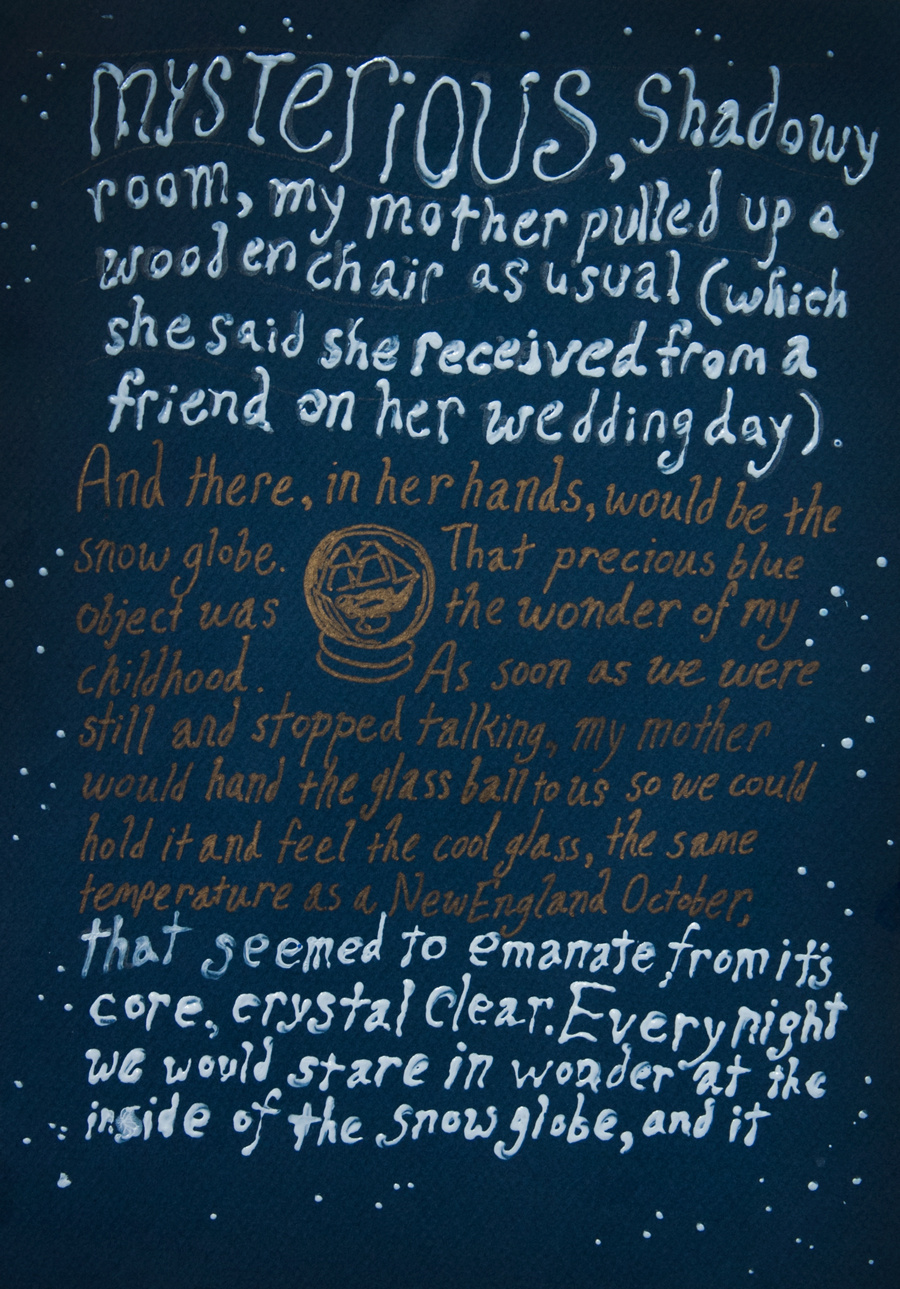 mysterious, shadowy
room, my mother pulled up a
wooden chair as usual (which
she said she received from a
friend on her wedding day).
And there, in her hands, would be the
snow globe. That precious blue
object was the wonder of my
childhood. As soon as we were
still and stopped talking, my mother
would hand the glass ball to us so we could
hold it and feel the cool glass, the same
temperature as a New England October,
that seemed to emanate from it's
core, crystal clear. Every night
we would stare in wonder at the
inside of the snow globe, and it